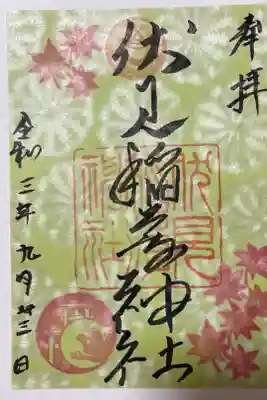 奉拝
伏見稲荷神社
伏見
神社
令和三年九月廿三日